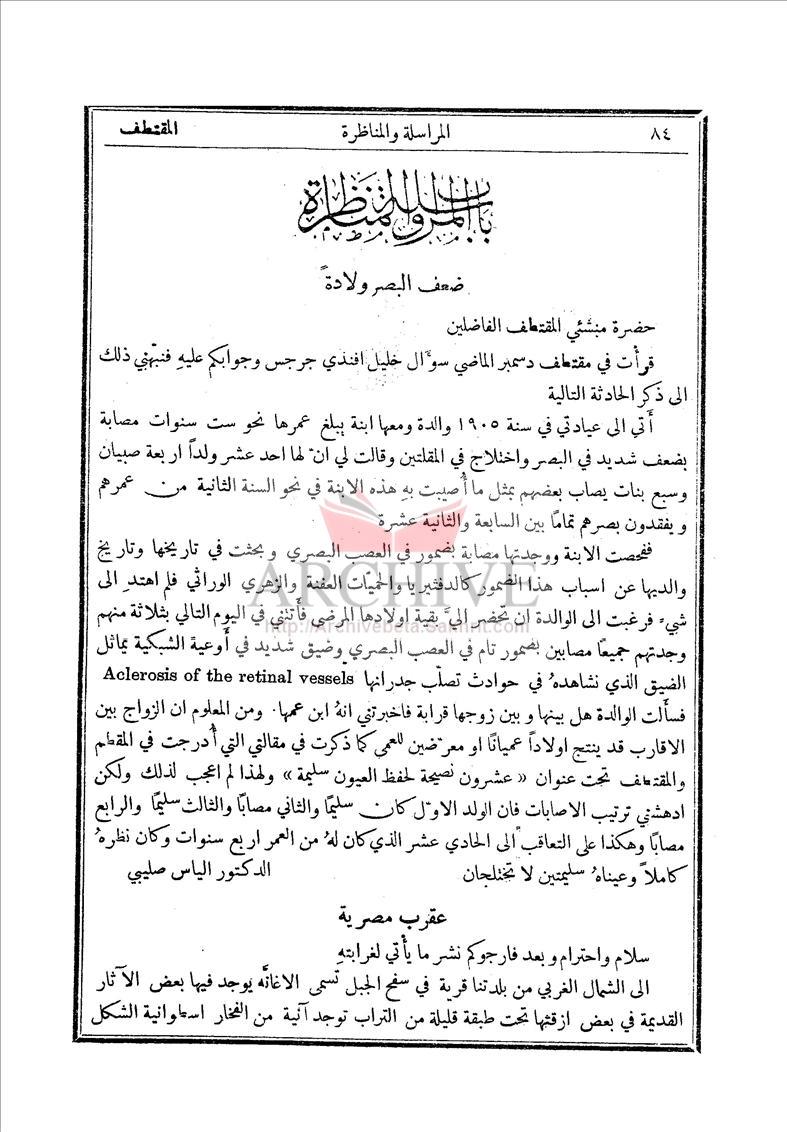 ٨٤ المراسلة والمناظرة المقتطف
باب المراسلة والمناظرة
ضعف البصر ولادةً
حضرة منشئي المقتطف الفاضلين
قرأت في مقتطف دسمبر الماضي سوَّال خليل افندي جرجس وجوابكم عليهِ فنبهَّني ذلك
الى ذكر الحادثة التالية
أتي الى عيادتي في سنة ١٩٠٥ والدة ومعها ابنة يبلغ عمرها نحو ست سنوات مصابة
بضعف شديد في البصر واختلاج في المقلتين وقالت لي انَّ لها احد عشر ولداً اربعة صبيان
وسبع بنات يصاب بعضهم بمثل ما أُصيبت بهِ هذه الابنة في نحو السنة الثانية من عمرهم
ويفقدون بصرهم تماماً بين السابعة والثانية عشرة
ففحصت الابنة ووجدتها مصابة بضمور في العصب البصري وبحثت في تاريخها وتاريخ
والديها عن اسباب هذا الضمور كالدفثيريا والحميَّات العفنة والزهري الوراثي فلم اهتدِ الى
شيءٍ فرغبت الى الوالدة ان تحضر اليَّ بقية اولادها المرضى فأتتني في اليوم التالي بثلاثة منهم
وجدتهم جميعاً مصابين بضمور تام في العصب البصري وضيق شديد في أوعية الشبكية يماثل
الضيق الذي نشاهدهُ في حوادث تصلّب جدرانها Aclerosis of the retinal vessels
فسألت الوالدة هل بينها وبين زوجها قرابة فاخبرتني انهُ ابن عمها. ومن المعلوم ان الزواج بين
الاقارب قد ينتج اولاداً عمياناً او معرَّضين للعمى كما ذكرت في مقالتي التي أُدرجت في المقطم
والمقتطف تحت عنوان «عشرون نصيحة لحفظ العيون سليمة» ولهذا لم اعجب لذلك ولكن
ادهشني ترتيب الاصابات فان الولد الاوَّل كان سليماً والثاني مصاباً والثالث سليماً والرابع
مصاباً وهكذا على التعاقب الى الحادي عشر الذي كان لهُ من العمر اربع سنوات وكان نظرهُ
كاملاً وعيناهُ سليمتين لا تختلجان الدكتور الياس صليبي
عقرب مصرية
سلام واحترام وبعد فارجوكم نشر ما يأتي لغرابتهِ
الى الشمال الغربي من بلدتنا قرية في سفح الجبل تسمى الاغانَّه يوجد فيها بعض الآثار
القديمة في بعض ازقتها تحت طبقة قليلة من التراب توجد آنية من الفخار اسطوانية الشكل
ARCHIVE
http://Archivebeta.Sakhrit.com